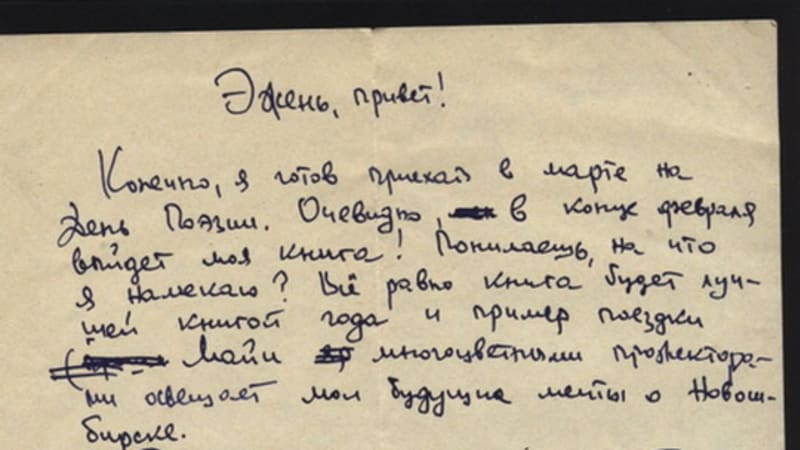 Эжень, привет!
Конечно, я готов приехать в марте на
День Поэзии. Очевидно, в конце февраля
выйдет моя книга! Понимаешь, на что
я намекаю? Всё равно книга будет луч-
шей книгой года и пример поездки
Майи многоцветными прожектора-
ми освещает мои будущие мечты о Новоси-
бирске.